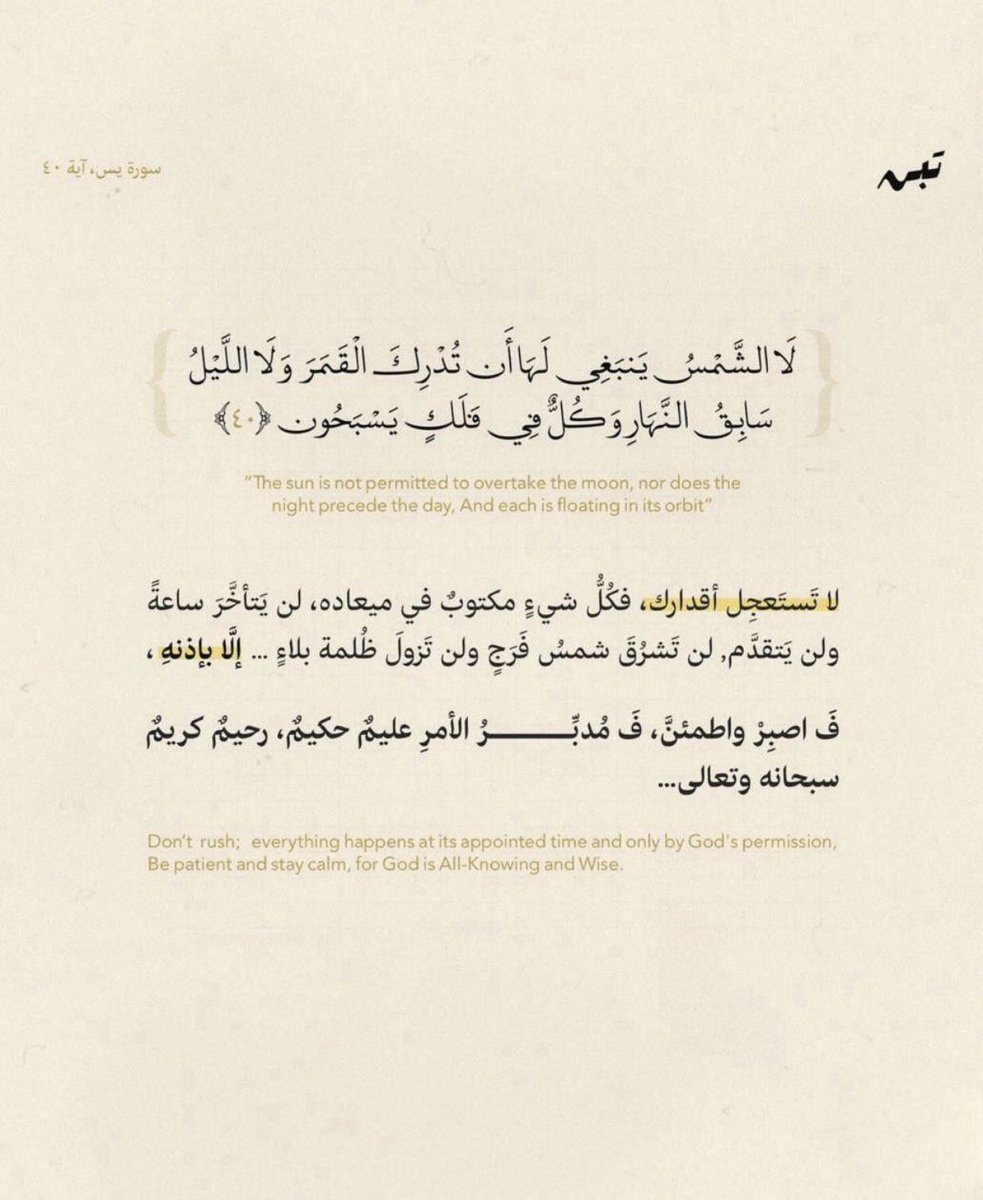 سورة يس، آية ٤٠
لَا الشَّمْسُ يَنبَغِي لَهَا أَن تُدْرِكَ الْقَمَرَ وَلَا اللَّيْلُ
سَابِقُ النَّهَارِ وَكُلٌّ فِي فَلَكٍ يَسْبَحُون ﴿٤٠﴾
"The sun is not permitted to overtake the moon, nor does the
night precede the day, And each is floating in its orbit"
لا تَستَعجِل أقدارك، فكُلُّ شيءٍ مكتوبٌ في ميعاده، لن يَتأخَّرَ ساعةً
ولن يَتقدَّم, لن تَشرُقَ شمسُ فَرَجٍ ولن تَزولَ ظُلمة بلاءٍ ... إلَّا بإذنهِ ،
فَ اصبِرْ واطمئنَّ، فَ مُدبِّـــــــــرُ الأمرِ عليمٌ حكيمٌ، رحيمٌ كريمٌ
سبحانه وتعالى...
Don't rush; everything happens at its appointed time and only by God's permission,
Be patient and stay calm, for God is All-Knowing and Wise.